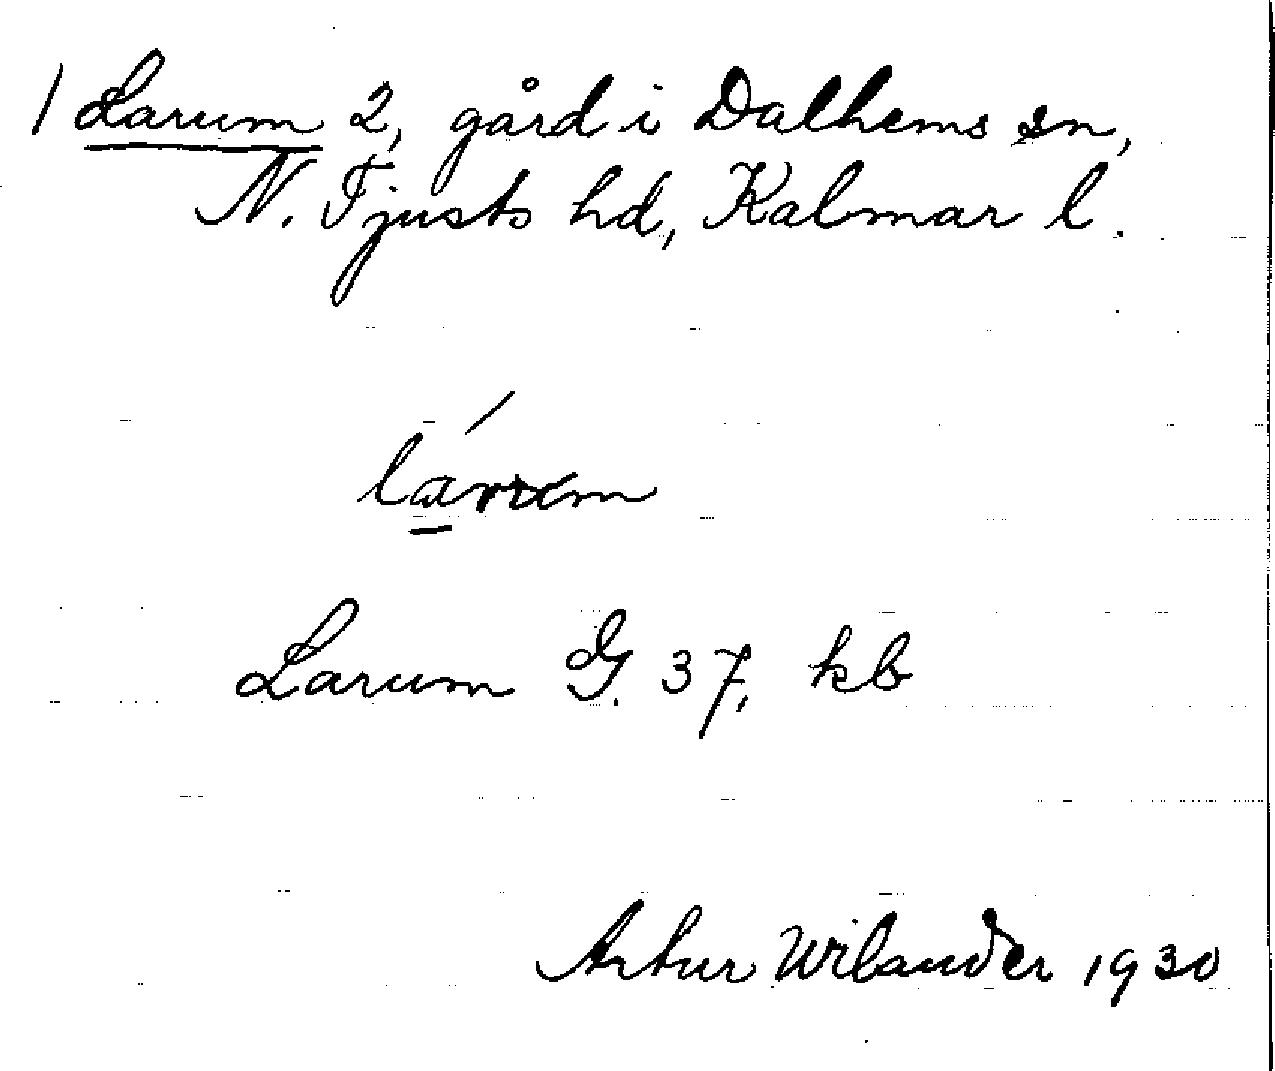 / Larum 2, gård i Dalhems sn,
N. Tjusts hd, Kalmar l.
Larum G. 37, kb
Artur Wilander 1930